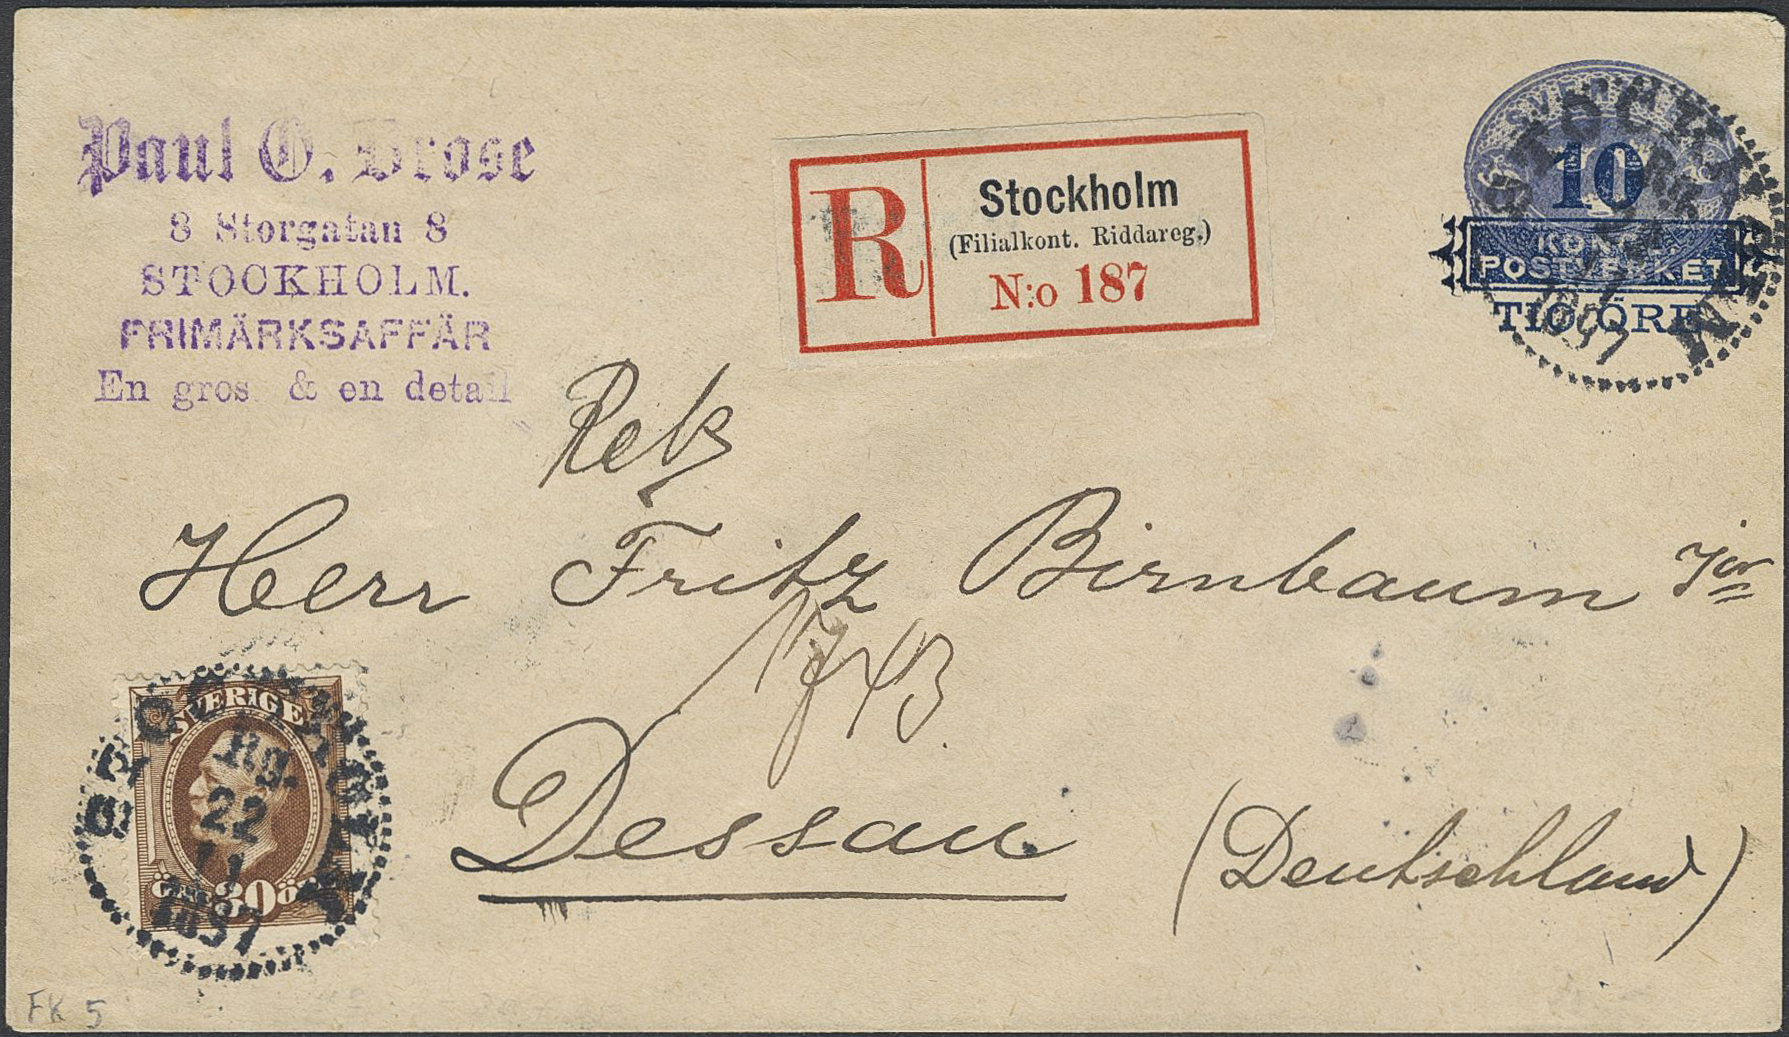 Paul G. Brose
8 Storgatan 8
STOCKHOLM.
FRIMÄRKSAFFÄR
En gros & en detail
R
Stockholm
(Filialkont. Riddareg.)
N:o 187
SVERIGE
10
KONGL
POSTVERKET
TIO ÖRE
STOCKHOLM
1897
Herr Fritz Birnbaum Jor
1743
Dessau
(Deutschland)
SVERIGE
30
STOCKHOLM
Rg.
22
11
1897
FK 5